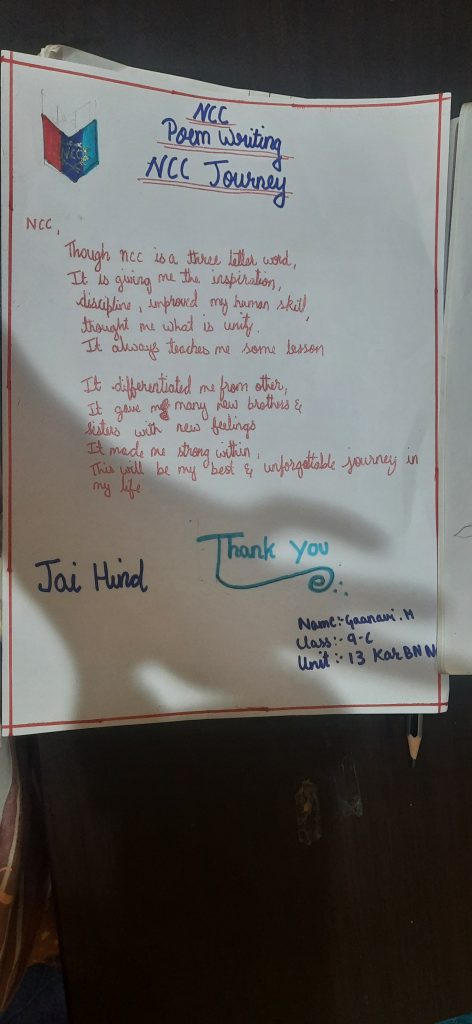 NCC
Poem Writing
NCC Journey
NCC
NCC,
Though ncc is a three letter word,
It is giving me the inspiration,
discipline, improved my human skill,
thought me what is unity.
It always teaches me some lesson
It differentiated me from other,
It gave me many new brothers &
sisters with new feelings
It made me strong within,
This will be my best & unforgottable journey in
my life
Thank You
Jai Hind
Name:- Gaanavi.H
Class:- 9-C
Unit:- 13 Kar BN N